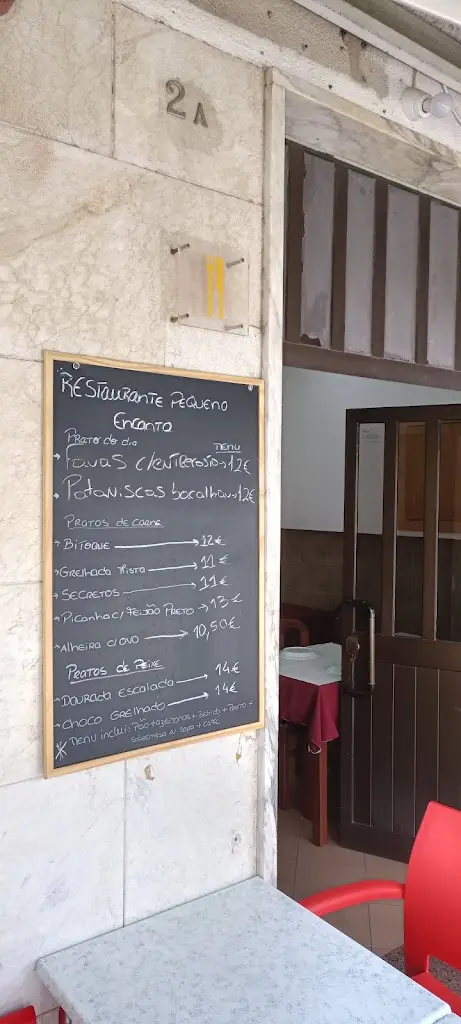 2A
RESTAURANTE PEQUENO
Encanto
Prato do dia
MENU
Favas c/entrecosto → 12€
Pataniscas bacalhau → 12€
PRATOS DE CARNE
→ BITOQUE → 12€
→ GRELHADA MISTA → 11€
→ SECRETOS → 11€
→ PICANHA C/ FEIJÃO PRETO → 13€
→ ALHEIRA C/OVO → 10,50€
PRATOS DE PEIXE
→ DOURADA ESCALADA → 14€
→ CHOCO GRELHADO → 14€
* MENU inclui: Pão + azeitonas + Bebida + Prato +
Sobremesa ou Sopa + Café